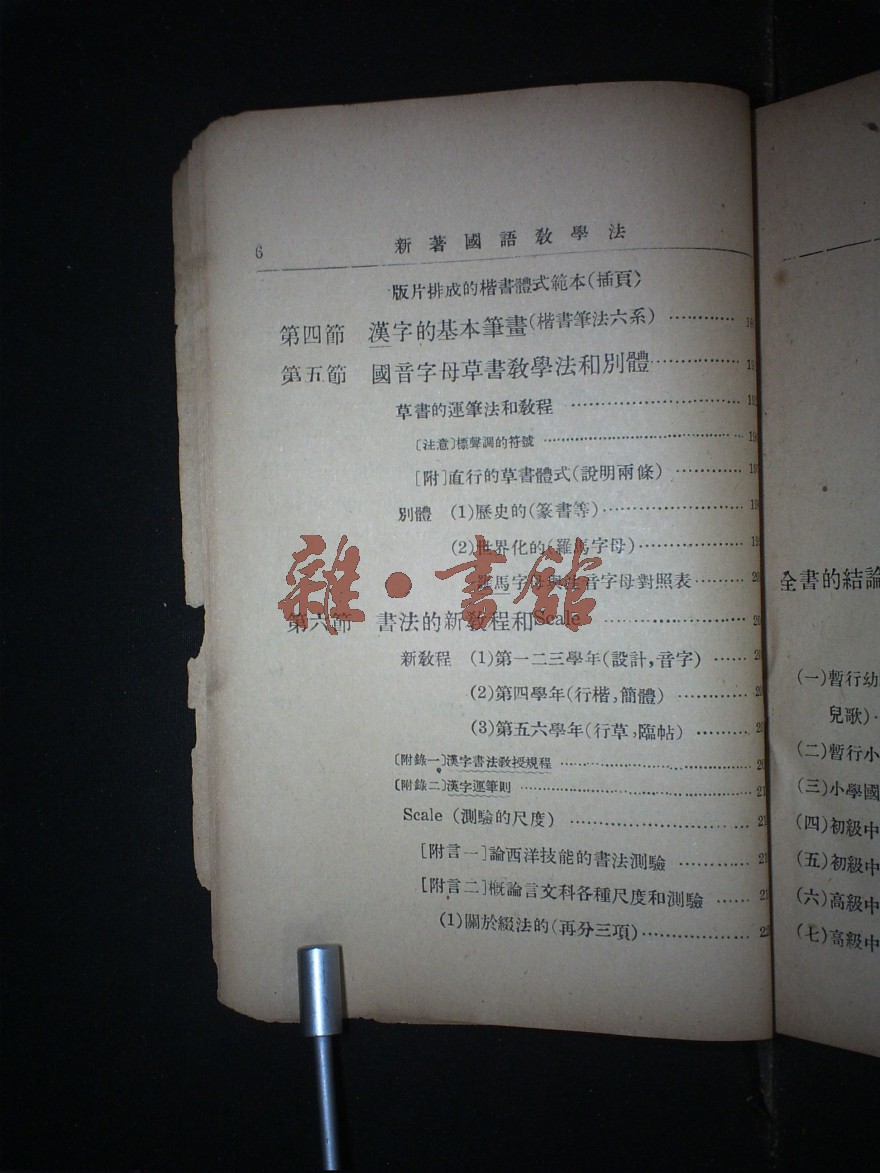 6 新著國語教學法
版片排成的楷書體式範本(插頁)
第四節 漢字的基本筆畫(楷書筆法六系)
第五節 國音字母草書教學法和別體
草書的運筆法和教程
〔注意〕標聲調的符號
[附]直行的草書體式(說明兩條)
別體 (1)歷史的(篆書等)
(2)世界化的(羅馬字母)
羅馬字母與注音字母對照表
第六節 書法的新教程和Scale
新教程 (1)第一二三學年(設計,音字)
(2)第四學年(行楷,簡體)
(3)第五六學年(行草,臨帖)
〔附錄一〕漢字書法教授規程
〔附錄二〕漢字運筆則
Scale (測驗的尺度)
[附言一]論西洋技能的書法測驗
[附言二]概論言文科各種尺度和測驗
(1)關於綴法的(再分三項)
雜·書館
全書的結論
(一)暫行幼
兒歌)
(二)暫行小
(三)小學國
(四)初級中
(五)初級中
(六)高級中
(七)高級中